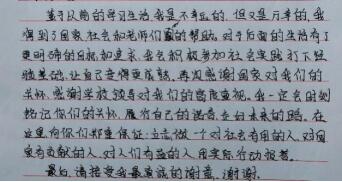 基于以前的学习生活,我是不幸运的,但又是万幸的,我
得到了国家,社会和老师们的帮助。对于后面的生活有了
更明确的目标和追求,我会积极参加社会实践,打下经
验基础,让自己变得更成熟,再次感谢国家对我们的
关怀,感谢学校领导对我们的高度重视。我一定会时刻
铭记你们的关怀,履行自己的诺言,走向未来的路。在
这里向你们郑重保证:立志做一个对社会有用的人,对国
家有贡献的人,对人们有益的人,用实际行动报答。
最后,请接受我最真诚的谢意,谢谢。